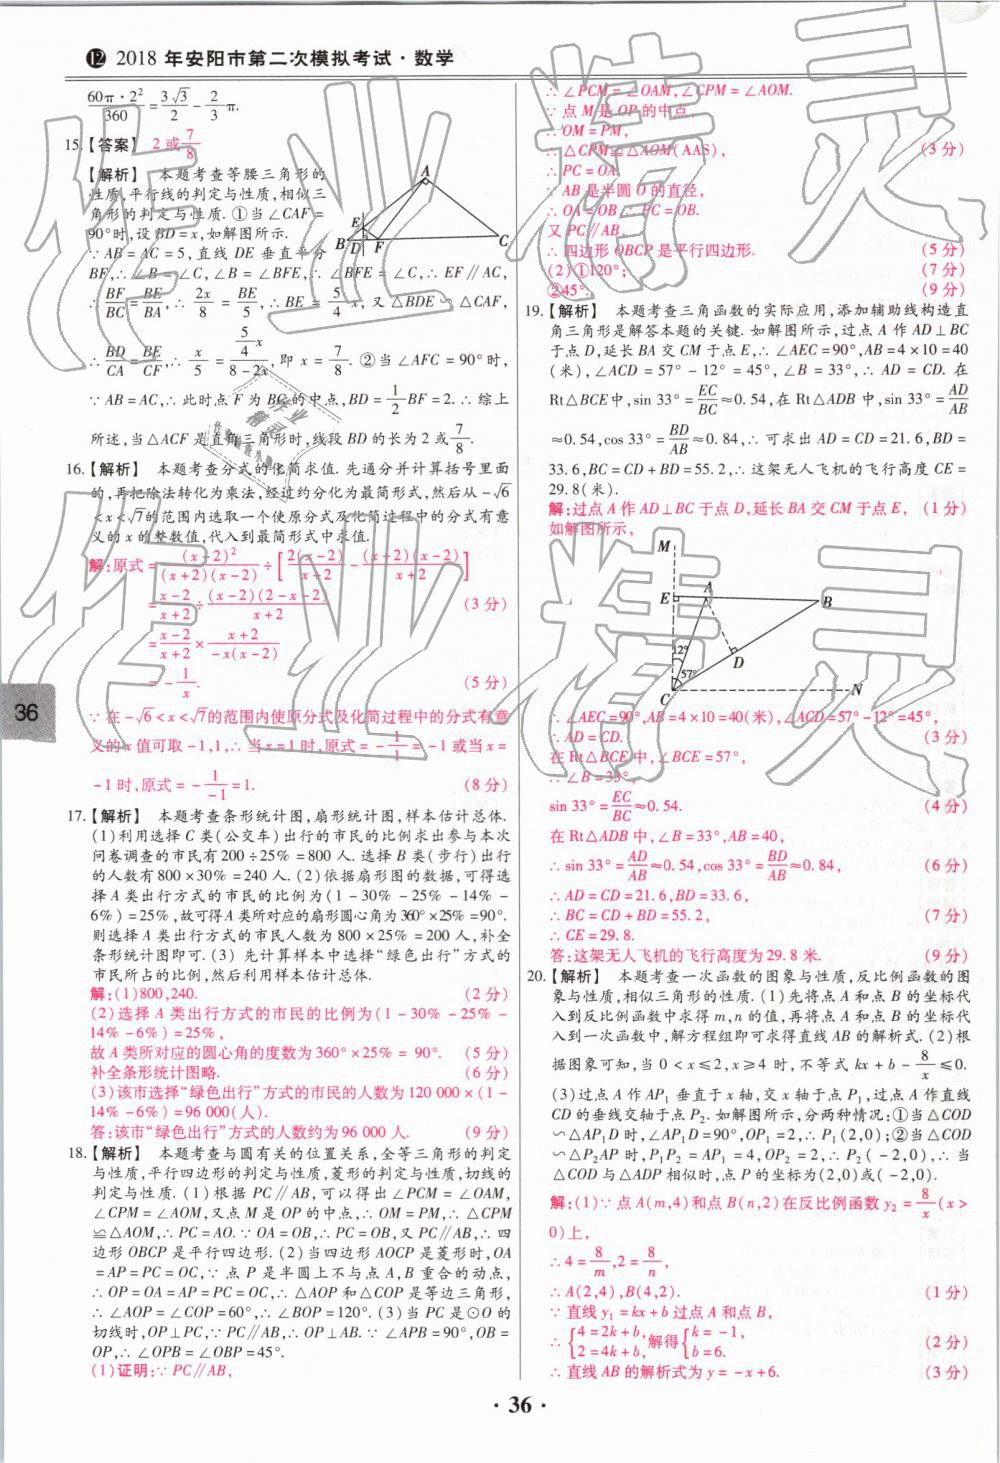 ⑫ 2018 年安阳市第二次模拟考试·数学
60π·2²/360 = 3√3/2 − 2/3 π.
15.【答案】 2 或 7/8
【解析】 本题考查等腰三角形的
性质,平行线的判定与性质,相似三
角形的判定与性质. ①当∠CAF =
90°时,设 BD = x,如解图所示.
∵ AB = AC = 5,直线 DE 垂直平分
BF,∴ ∠B = ∠C,∠B = ∠BFE,∴ ∠BFE = ∠C,∴ EF∥AC,
∴ BF/BC = BE/BA,∴ 2x/8 = BE/5,∴ BE = 5/4 x,又 △BDE∽△CAF,
∴ BD/CA = BE/CF,∴ x/5 = (5/4 x)/(8−2x),即 x = 7/8. ②当∠AFC = 90°时,
∵ AB = AC,∴ 此时点 F 为 BC 的中点,BD = 1/2 BF = 2.∴ 综上
所述,当△ACF 是直角三角形时,线段 BD 的长为 2 或 7/8.
16.【解析】 本题考查分式的化简求值. 先通分并计算括号里面
的,再把除法转化为乘法,经过约分化为最简形式,然后从 −√6
< x < √7的范围内选取一个使原分式及化简过程中的分式有意
义的 x 的整数值,代入到最简形式中求值.
解:原式 = (x+2)²/(x+2)(x−2) ÷ [2(x−2)/(x+2) − (x+2)(x−2)/(x+2)]
= (x−2)/(x+2) ÷ (x−2)(2−x−2)/(x+2) (3 分)
= (x−2)/(x+2) × (x+2)/−x(x−2)
= − 1/x. (5 分)
∵ 在 −√6 < x < √7的范围内使原分式及化简过程中的分式有意
义的 x 值可取 −1,1,∴ 当 x = 1 时,原式 = − 1/1 = −1 或当 x =
−1 时,原式 = − 1/−1 = 1. (8 分)
17.【解析】 本题考查条形统计图,扇形统计图,样本估计总体.
(1)利用选择 C 类(公交车)出行的市民的比例求出参与本次
问卷调查的市民有 200÷25% = 800 人. 选择 B 类(步行)出行
的人数有 800×30% = 240 人. (2)依据扇形图的数据,可得选
择 A 类出行方式的市民的比例为(1 − 30% − 25% − 14% −
6%) = 25%,故可得 A 类所对应的扇形圆心角为 360°×25% = 90°.
则选择 A 类出行方式的市民人数为 800×25% = 200 人,补全
条形统计图即可. (3) 先计算样本中选择“绿色出行”方式的
市民所占的比例,然后利用样本估计总体.
解:(1)800,240. (2 分)
(2)选择 A 类出行方式的市民的比例为(1 − 30% − 25% −
14% − 6%) = 25%,
故 A 类所对应的圆心角的度数为 360°×25% = 90°. (5 分)
补全条形统计图略. (6 分)
(3)该市选择“绿色出行”方式的市民的人数为 120 000×(1−
14% − 6%) = 96 000(人).
答:该市“绿色出行”方式的人数约为 96 000 人. (9 分)
18.【解析】 本题考查与圆有关的位置关系,全等三角形的判定
与性质,平行四边形的判定与性质,菱形的判定与性质,切线的
判定与性质. (1)根据 PC∥AB,可以得出∠PCM = ∠OAM,
∠CPM = ∠AOM,又点 M 是 OP 的中点,∴ OM = PM,∴ △CPM
≌△AOM,∴ PC = AO.∵ OA = OB,∴ PC = OB,又 PC∥AB,∴ 四
边形 OBCP 是平行四边形. (2)当四边形 AOCP 是菱形时,OA
= AP = PC = OC,∵ 点 P 是半圆上不与点 A,B 重合的动点,
∴ OP = OA = AP = PC = OC,∴ △AOP 和△COP 是等边三角形,
∴ ∠AOP = ∠COP = 60°,∴ ∠BOP = 120°. (3)当 PC 是⊙O 的
切线时,OP⊥PC,∵ PC∥AB,∴ OP⊥AB.∵ ∠APB = 90°,OB =
OP,∴ ∠OPB = ∠OBP = 45°.
(1)证明:∵ PC∥AB,
∴ ∠PCM = ∠OAM,∠CPM = ∠AOM.
∵ 点 M 是 OP 的中点,
∴ OM = PM,
∴ △CPM≌△AOM(AAS), (3 分)
∴ PC = OA.
∵ AB 是半圆 O 的直径,
∴ OA = OB ∴ PC = OB.
又 PC∥AB,
∴ 四边形 OBCP 是平行四边形. (5 分)
(2)①120°; (7 分)
②45°. (9 分)
19.【解析】 本题考查三角函数的实际应用,添加辅助线构造直
角三角形是解答本题的关键. 如解图所示,过点 A 作 AD⊥BC
于点 D,延长 BA 交 CM 于点 E,∴ ∠AEC = 90°,AB = 4×10 = 40
(米),∠ACD = 57° − 12° = 45°,∠B = 33°,∴ AD = CD. 在
Rt△BCE 中,sin 33° = EC/BC ≈0.54,在 Rt△ADB 中,sin 33° = AD/AB
≈0.54,cos 33° = BD/AB ≈0.84,∴ 可求出 AD = CD = 21.6,BD =
33.6,BC = CD + BD = 55.2,∴ 这架无人飞机的飞行高度 CE =
29.8(米).
解:过点 A 作 AD⊥BC 于点 D,延长 BA 交 CM 于点 E, (1 分)
如解图所示,
∴ ∠AEC = 90°,AB = 4×10 = 40(米),∠ACD = 57° − 12° = 45°,
∴ AD = CD. (3 分)
在 Rt△BCE 中,∠BCE = 57°,
∴ ∠B = 33°,
sin 33° = EC/BC ≈0.54. (4 分)
在 Rt△ADB 中,∠B = 33°,AB = 40,
∴ sin 33° = AD/AB ≈0.54,cos 33° = BD/AB ≈0.84, (6 分)
∴ AD = CD = 21.6,BD = 33.6,
∴ BC = CD + BD = 55.2, (7 分)
∴ CE = 29.8.
答:这架无人飞机的飞行高度为 29.8 米. (9 分)
20.【解析】 本题考查一次函数的图象与性质,反比例函数的图
象与性质,相似三角形的性质. (1)先将点 A 和点 B 的坐标代
入到反比例函数中求得 m,n 的值,再将点 A 和点 B 的坐标代
入到一次函数中,解方程组即可求得直线 AB 的解析式. (2)根
据图象可知,当 0 < x ≤ 2,x ≥ 4 时,不等式 kx + b − 8/x ≤ 0.
(3)过点 A 作 AP₁ 垂直于 x 轴,交 x 轴于点 P₁,过点 A 作直线
CD 的垂线交轴于点 P₂. 如解图所示,分两种情况:①当△COD
∽△AP₁D 时,∠AP₁D = 90°,OP₁ = 2,∴ P₁(2,0);②当△COD
∽△P₂AP 时,P₁P₂ = AP₁ = 4,OP₂ = 2,∴ P₂(−2,0),∴ 当
△COD 与△ADP 相似时,点 P 的坐标为(2,0)或(−2,0).
解:(1)∵ 点 A(m,4)和点 B(n,2)在反比例函数 y₂ = 8/x (x >
0)上,
∴ 4 = 8/m,2 = 8/n,
∴ A(2,4),B(4,2). (1 分)
∵ 直线 y₁ = kx + b 过点 A 和点 B,
∴ {4 = 2k + b, 2 = 4k + b, 解得 {k = −1, b = 6. (2 分)
∴ 直线 AB 的解析式为 y = −x + 6. (3 分)
36
· 36 ·
作业精灵